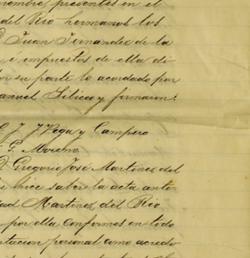 nombre, presentes en el
del Rio hermanos los
D. Juan Fernandez de la
é impuestos de ella di-
por su parte lo acordado por
Manuel Silicio y firmaron:
C. J. J. Vega y Campero
G. Moreno
D. Gregorio José Martinez del
é hice saber la acta ante
Martinez del Rio
por ella, conformes en todo
personal como acredo